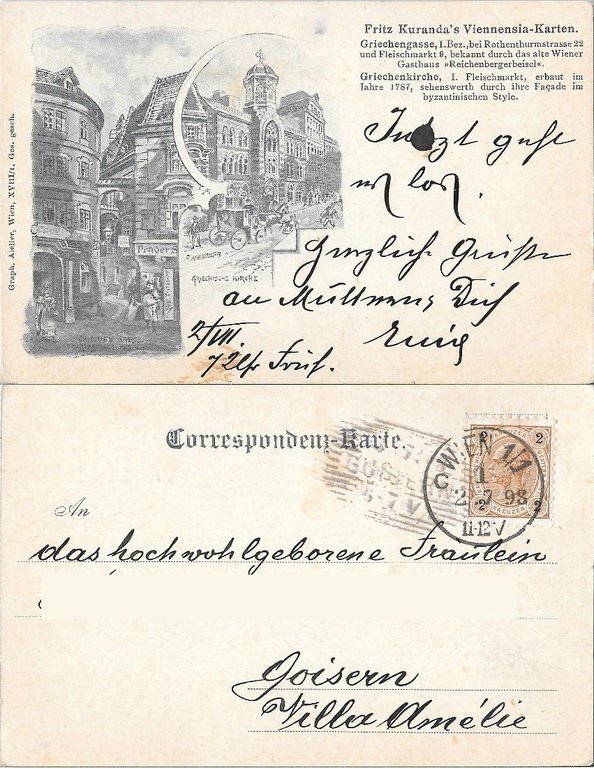 Fritz Kuranda's Viennensia-Karten.
Griechengasse, I. Bez., bei Rothenthurmstrasse 22
und Fleischmarkt 9, bekannt durch das alte Wiener
Gasthaus »Reichenbergerbeisel«.
Griechenkirche, I. Fleischmarkt, erbaut im
Jahre 1787, sehenswerth durch ihre Façade im
byzantinischen Style.
Graph. Atelier, Wien, XVIII/1. Ges. gesch.
GRIECHISCHE KIRCHE
Jetzt geht
es los.
Herzliche Grüße
an Dich
2/VII.
7 Uhr Früh.
Correspondenz-Karte.
2 2
KREUZER
2 2
WIEN 1/1
C 1
2 7 98
11-12V
An
das hochwohlgeborene Fräulein
Goisern
Villa Amélie